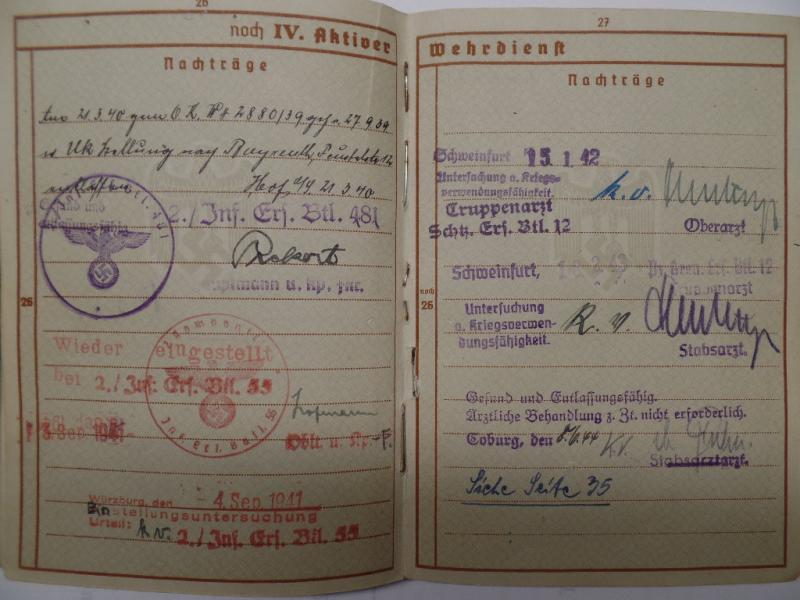 26
noch IV. Aktiver
Nachträge
21.3.40 2880/39 27.9.39
Uk Stellung nach Bayreuth
entlassen Hof 21.3.40
Gesund und
entlassungsfähig
2./Inf. Ers. Btl. 481
Hauptmann u. Kp. Fhr.
26
Wieder eingestellt
bei 2./Inf. Ers. Btl. 55
Kommando
Inf. Ers. Batl. 55
3. Sep. 1941
Hofmann
Oblt. u. Kp.-F.
Würzburg, den - 4. Sep. 1941
Einstellungsuntersuchung
Urteil: kv. 2./Inf. Ers. Btl. 55
27
Wehrdienst
Nachträge
Schweinfurt 15. 1. 42
Untersuchung a. Kriegs-
verwendungsfähigkeit.
k.v.
Truppenarzt
Schtz. Ers. Btl. 12
Oberarzt
Schweinfurt, Pz. Gren. Ers. Btl. 12
Truppenarzt
noch
26
Untersuchung
a. Kriegsverwen-
dungsfähigkeit.
K. v.
Stabsarzt.
Gesund und Entlassungsfähig.
Ärztliche Behandlung z. Zt. nicht erforderlich.
Coburg, den
Stabsarzt.
Siehe Seite 35